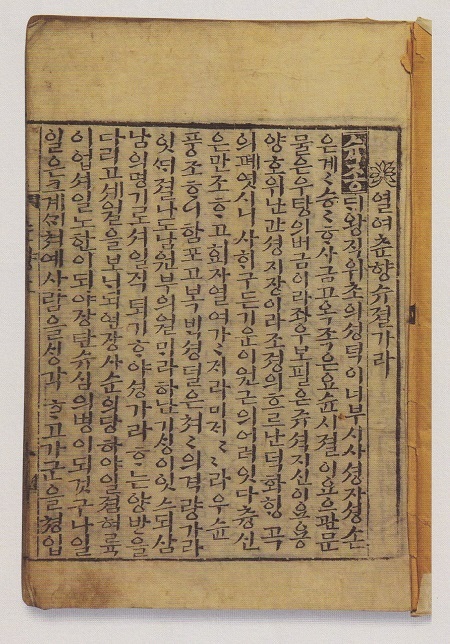 열여춘향슈졀가라
슉종ᄃᆡ왕직위초의셩덕이너부시사셩자셩손
은계〻승〻ᄒᆞ사금고옥족은요슌시졀이요으관문
물은우탕의버금이라좌우보필은쥬셕지신이요용
양호위난간셩지장이라조졍의흐르난덕화ᄒᆡᆼ곡
의폐엿시니사ᄒᆡ구든기운이원근의어려잇다츙신
은만조ᄒᆞ고회자열여가〻ᄌᆡ라미ᄌᆡ〻〻라우슌
풍조ᄒᆞ니함포고복ᄇᆡᆨ셩덜은쳐〻의격량가라
잇ᄯᆡ졀나도남원부의월ᄆᆡ라하난기ᄉᆡᆼ이잇스되삼
남의명기로셔일직퇴기ᄒᆞ야셩가라ᄒᆞ는양반을
다리고셰월을보ᄂᆡ되연장사순의당하야일졈혀륙
이업셔일노한이되야장탄슈심의병이되것구나일
일은크계ᄭᆡ쳐예사람을ᄉᆡᆼ각ᄒᆞ고가군을쳥입